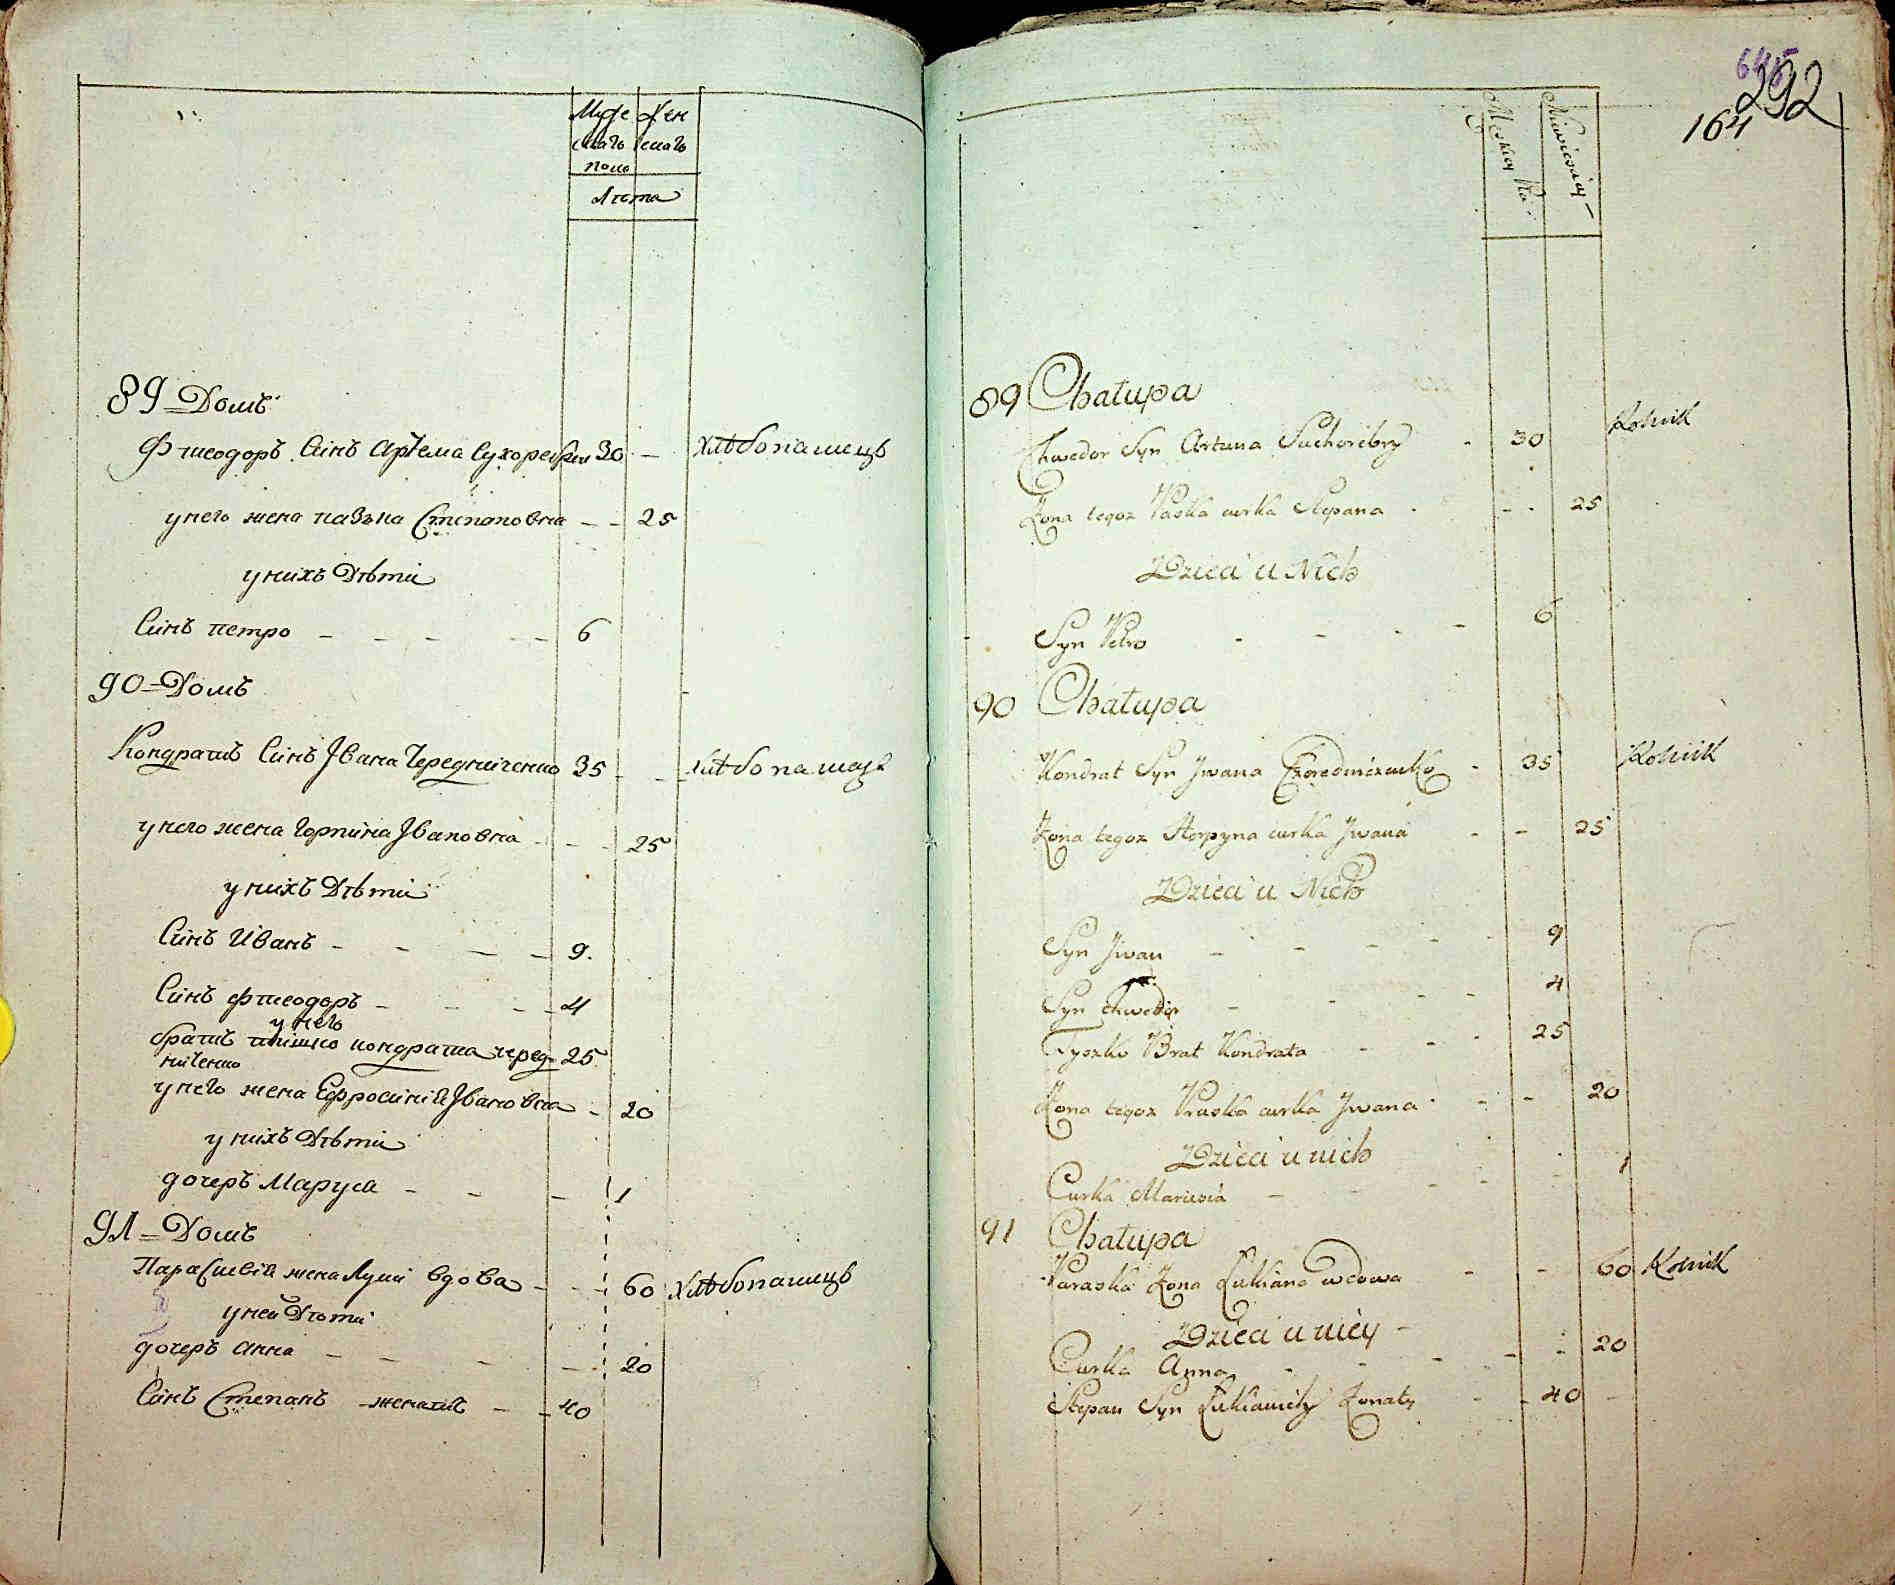 Муже Жен
скаго скаго
полю
Лѣта
89 = Домъ
Фтеодоръ Синъ Артема Сухоребри 30 — Хлѣбопашецъ
у него жена пазька Степановна — — 25
у нихъ Дѣти
Синъ петро — — — — — 6
90 = Домъ
Кондратъ Синъ Івана Чередниченко 35 — — хлѣбопашецъ
у него жена Горпина Івановна — — — 25
у нихъ Дѣти
Синъ Иванъ — — — — 9.
Синъ фтеодоръ — — — — 4
у него
братъ тишко кондрата черед= 25
ниченко
у него жена Ефросинія Івановна — 20
у нихъ Дѣти
дочеръ Маруся — — — 1
91 = Домъ
Параскевія жена Луки вдова — — — 60 Хлѣбопашецъ
у ней Дѣти
дочеръ анна — — — — — 20
Синъ Степанъ — женатъ — — 40
292
164
Męskiey
Niewieściey —
89 Chałupa
Chwedor Syn Artema Suchorebry - 30 Rolnik
Żona tegoz Paska curka Stepana - - - 25
Dzieci u Nich
Syn Petro - - - - 6
90 Chałupa
Kondrat Syn Jwana Czeredniczenko - 35 Rolnik
Żona tegoz Horpyna curka Jwana - - 25
Dzieci u Nich
Syn Jwan - - - - - 9
Syn Chwedir - - - - 4
Tyszko Brat Kondrata - - - 25
Żona tegoz Pruska curka Jwana - - - 20
Dzieci u nich
Curka Marusia - - - - 1
91 Chałupa
Paraska Żona Łukiana wdowa - - 60 Rolnik
Dzieci u niey -
Curka Anna - - - - - 20
Stepan Syn Łukianichy Żonaty - - 40 -